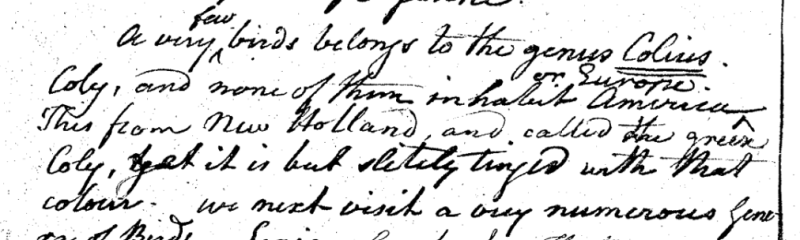 A very few birds belongs to the genus Colius.
Coly, and none of them inhabit America or Europe.
This from New Holland, and called the green
Coly, yet it is but slitely tinged with that
colour. we next visit a very numerous Gene-
of Birds